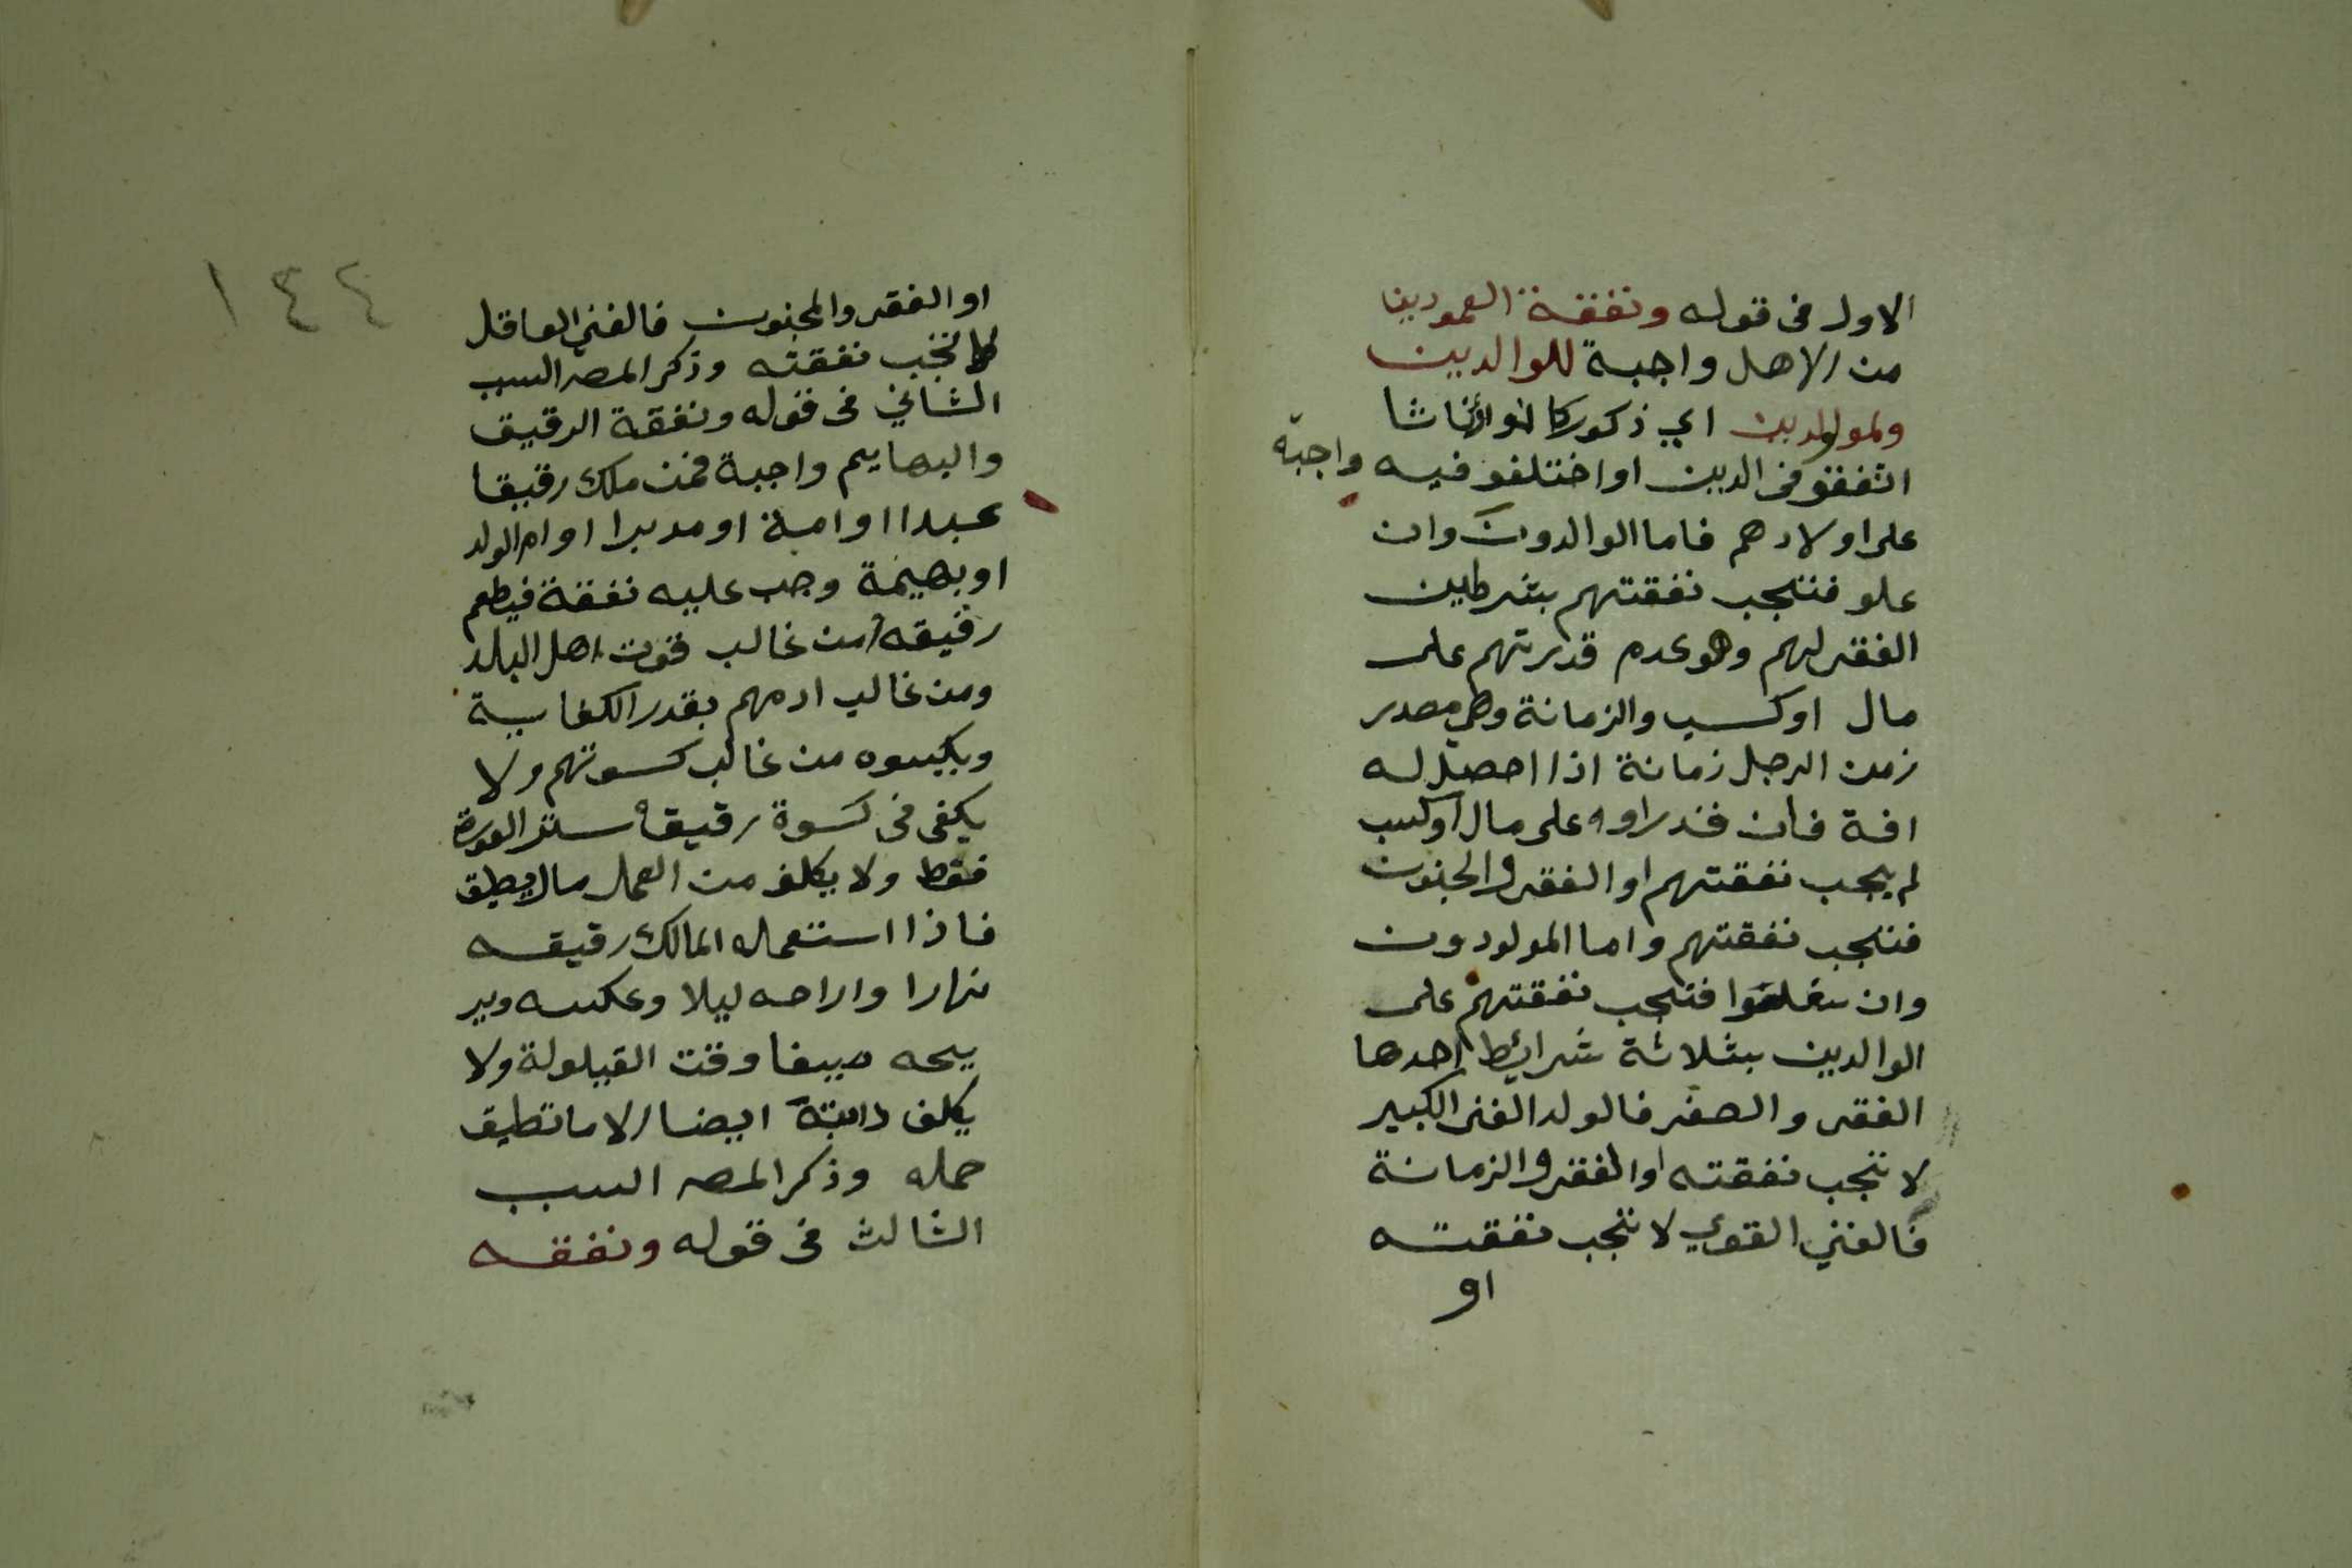 الاول فى قوله ونفقة العمودين
من الاهل واجبة للوالدين
ولمولدين اي ذكورا كانوا اناثا
اتفقو فى الدين او اختلفو فيه واجبة
على اولادهم فاما الوالدون وان
علو فتجب نفقتهم بشرطين
الفقر لهم وهو عدم قدرتهم على
مال او كسب والزمانة وهي مصدر
زمن الرجل زمانة اذا احصل له
افة فان قدراوه على مال او كسب
لم يجب نفقتهم او الفقر والجنون
فتجب نفقتهم واما المولودون
وان سفلوا فتجب نفقتهم على
الوالدين بثلاثة شرائط احدها
الفقر والصغر فالولد الغنى الكبير
لا تجب نفقته او الفقر والزمانة
فالغني القوي لا تجب نفقته
او
١٤٤
او الفقر والمجنون فالغني العاقل
لا تجب نفقته وذكر المصر السبب
الثاني فى قوله ونفقة الرقيق
والبهايم واجبة فمن ملك رقيقا
عبدا او امة او مدبرا او ام الولد
او بهيمة وجب عليه نفقة فيطعم
رقيقه من غالب قوت اهل البلد
ومن غالب ادمهم بقدر الكفاية
ويكسوه من غالب كسوتهم ولا
يكفى فى كسوة رقيقه ستر العورة
فقط ولا يكلف من العمل مالا يطيق
فاذا استعمله المالك رقيقه
نهارا واراحه ليلا وعكسه وير
يحه صيفا وقت القيلولة ولا
يكلف دابته ايضا الا ما تطيق
حمله وذكر المصر السبب
الثالث فى قوله ونفقه